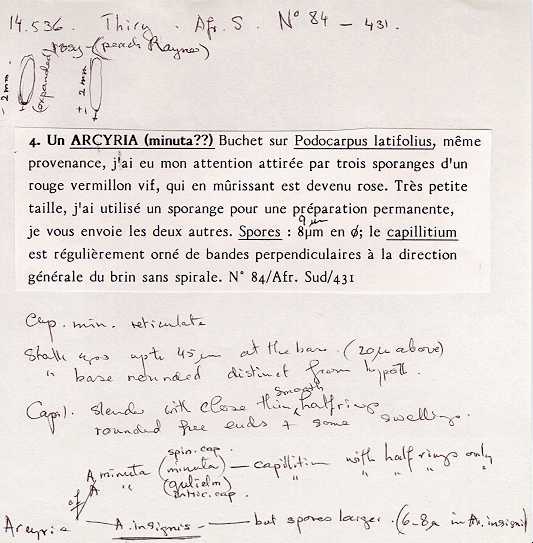 14.536. Thiry. Afr. S. N° 84 - 431.
rosy - (peach Rayner)
2 mm.
(expanded)
± 2 mm
4. Un ARCYRIA (minuta??) Buchet sur Podocarpus latifolius, même
provenance, j'ai eu mon attention attirée par trois sporanges d'un
rouge vermillon vif, qui en mûrissant est devenu rose. Très petite
taille, j'ai utilisé un sporange pour une préparation permanente,
9 µm
je vous envoie les deux autres. Spores : 8µm en ø; le capillitium
est régulièrement orné de bandes perpendiculaires à la direction
générale du brin sans spirale. N° 84/Afr. Sud/431
Cup. min. reticulate
Stalk upto 45 µm at the base. (20µ above)
" base rounded distinct from hypoth.
smooth
Capil. slender with close thin halfrings
rounded free ends + some swellings.
spin. cap.
A minuta (minuta) — capillitium with half rings only
A " (gulielm) " " " "
intric. cap.
of
Arcyria — A. insignis — but spores larger. (6-8µ in Ar. insignis)